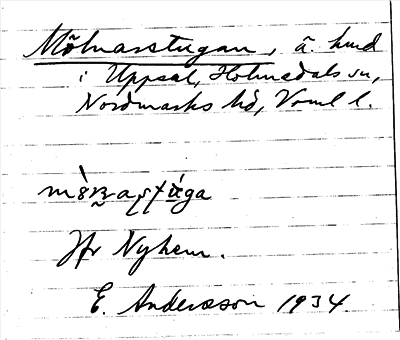 Mölnarstugan, å. hmd
i Uppsal, Holmedals sn,
Nordmarks hd, Vrml l.
Jfr Nyhem.
E. Andersson 1934